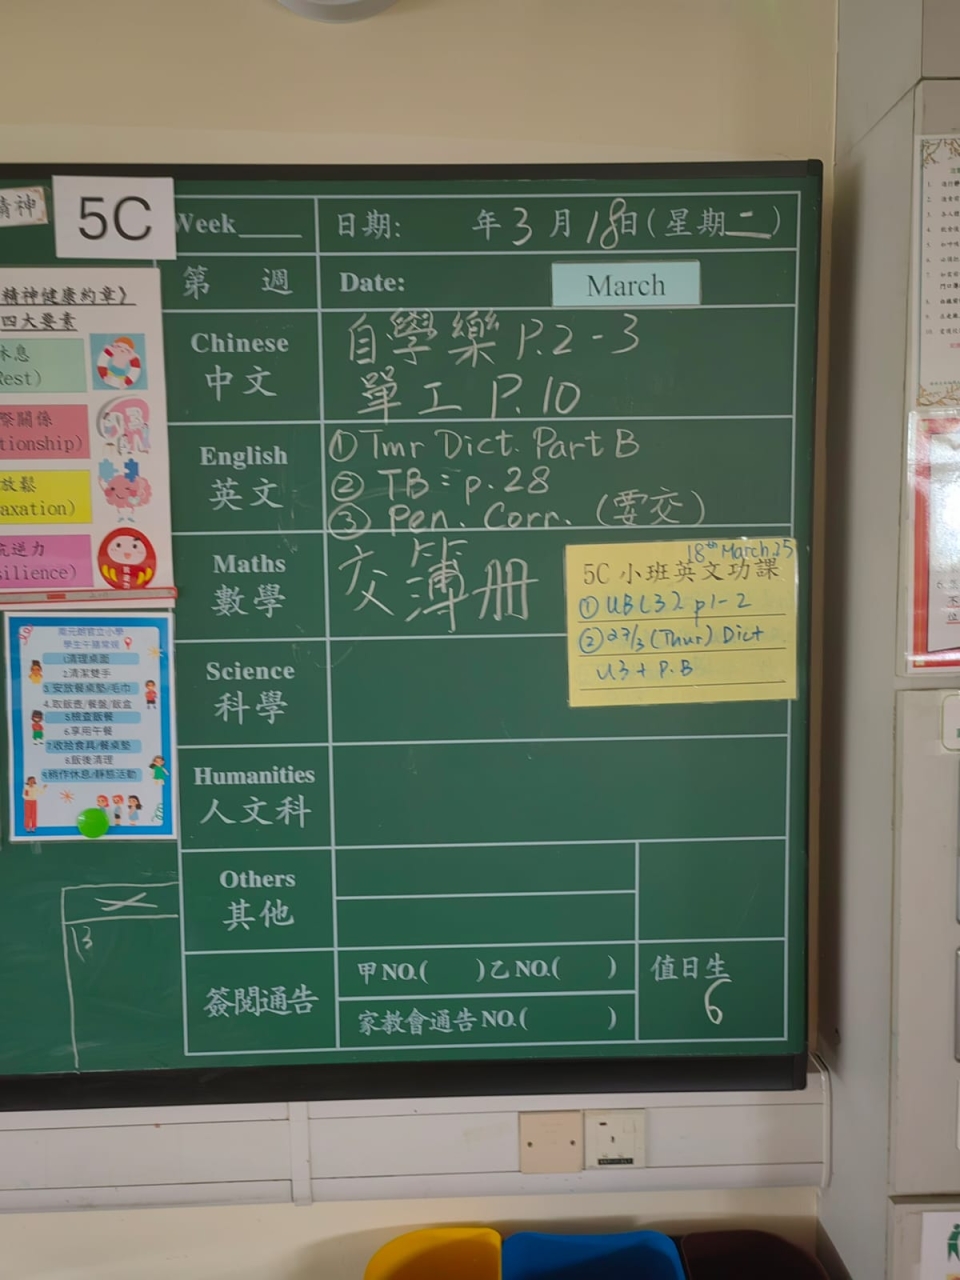 精神
5C
Week
日期: 年3月18日(星期二)
第 週
Date:
March
Chinese
中文
自學樂 P.2-3
單工 P.10
English
英文
① Tmr Dict. Part B
② TB: p.28
③ Pen. Corr. (要交)
Maths
數學
交簿冊
18th March, 25
5C 小班英文功課
① UB(3) p1-2
② 27/3 (Thur) Dict
U3 + P.B
Science
科學
Humanities
人文科
Others
其他
簽閱通告
甲NO.( )乙NO.( )
家教會通告NO.( )
值日生
6
精神健康約章》
四大要素
休息
Rest)
際關係
tionship)
放鬆
axation)
抗逆力
silience)
南元朗官立小學
學生午膳常規
1.清理桌面
2.清潔雙手
3.安放餐桌墊/毛巾
4.取飯壺/餐盤/飯盒
5.檢查飯餐
6.享用午餐
7.收拾食具/餐桌墊
8.飯後清理
9.稍作休息/靜態活動
13